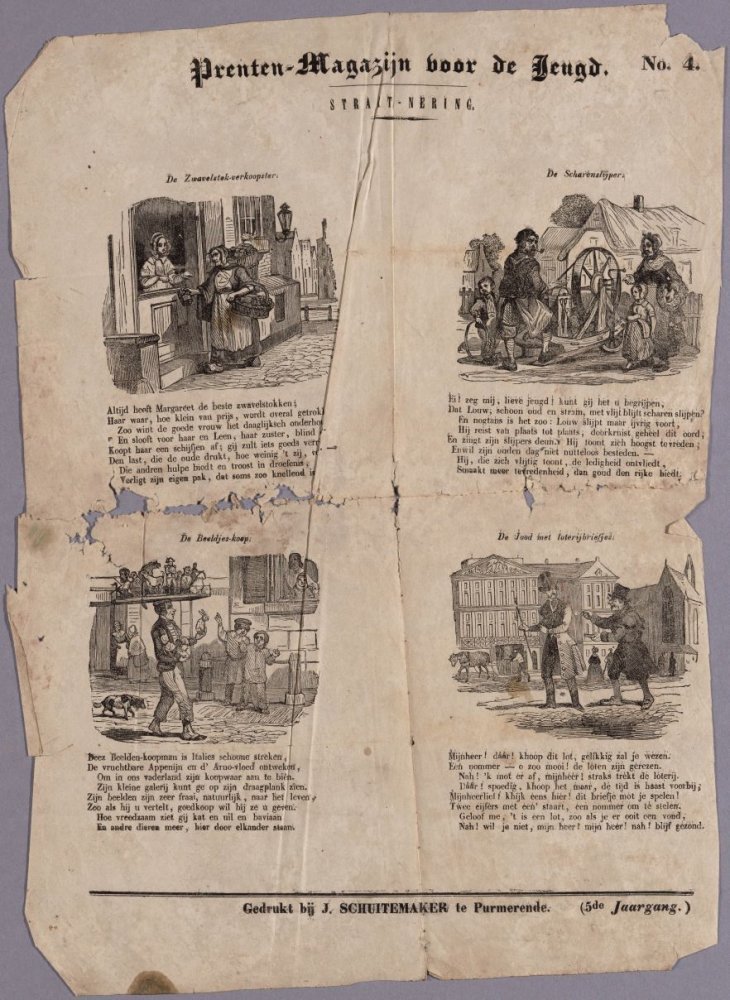 Prenten-Magazijn voor de Jeugd. No. 4.
STRAAT-NERING.
De Zwavelstok-verkoopster.
Altijd heeft Margareet de beste zwavelstokken;
Haar waar, hoe klein van prijs, wordt overal getrok
Zoo wint de goede vrouw het daaglijksch onderho
En slooft voor haar en Leen, haar zuster, blind
Koopt haar een schijfjen af; gij zult iets goeds verr
Den last, die de oude drukt, hoe weinig 't zij,
Die andren hulpe biedt en troost in droefenis,
Verligt zijn eigen pak, dat soms zoo knellend is
De Scharenslijper.
Ei! zeg mij, lieve jeugd! kunt gij het u begrijpen,
Dat Louw, schoon oud en stram, met vlijt blijft scharen slijpen?
En nogtans is het zoo: Louw slijpt maar ijvrig voort,
Hij reist van plaats tot plaats, doorkruist geheel dit oord,
En zingt zijn slijpers deun. Hij toont zich hoogst tevreden;
Enwil zijn ouden dag niet nutteloos besteden. —
Hij, die zich vlijtig toont, de ledigheid ontvliedt,
Smaakt meer tevredenheid, dan goud den rijke biedt.
De Beeldjes-koop.
Deez Beelden-koopman is Italies schoone streken,
De vruchtbare Appenijn en d' Arno-vloed ontweken,
Om in ons vaderland zijn koopwaar aan te biên.
Zijn kleine galerij kunt ge op zijn draagplank zien.
Zijn beelden zijn zeer fraai, natuurlijk, naar het leven,
Zoo als hij u vertelt, goedkoop wil hij ze u geven.
Hoe vreedzaam ziet gij kat en uil en baviaan
En andre dieren meer, hier door elkander staan.
De Jood met loterijbriefjes.
Mijnheer! dáár! khoop dit lot, gelikkig zal je wezen.
Een nommer — o zoo mooi! de loten zijn gerezen.
Nah! 'k mot er af, mijnheer! straks trekt de loterij.
Dáár! spoedig, khoop het maar, de tijd is haast voorbij;
Mijnheerlief! khijk eens hier! dit briefje mot je spelen!
Twee eijfers met een' staart, een nommer om te stelen.
Geloof me, 't is een lot, zoo als je er ooit een vond,
Nah! wil je niet, mijn heer! mijn heer! nah! blijf gezond.
Gedrukt bij J. SCHUITEMAKER te Purmerende. (5de Jaargang.)